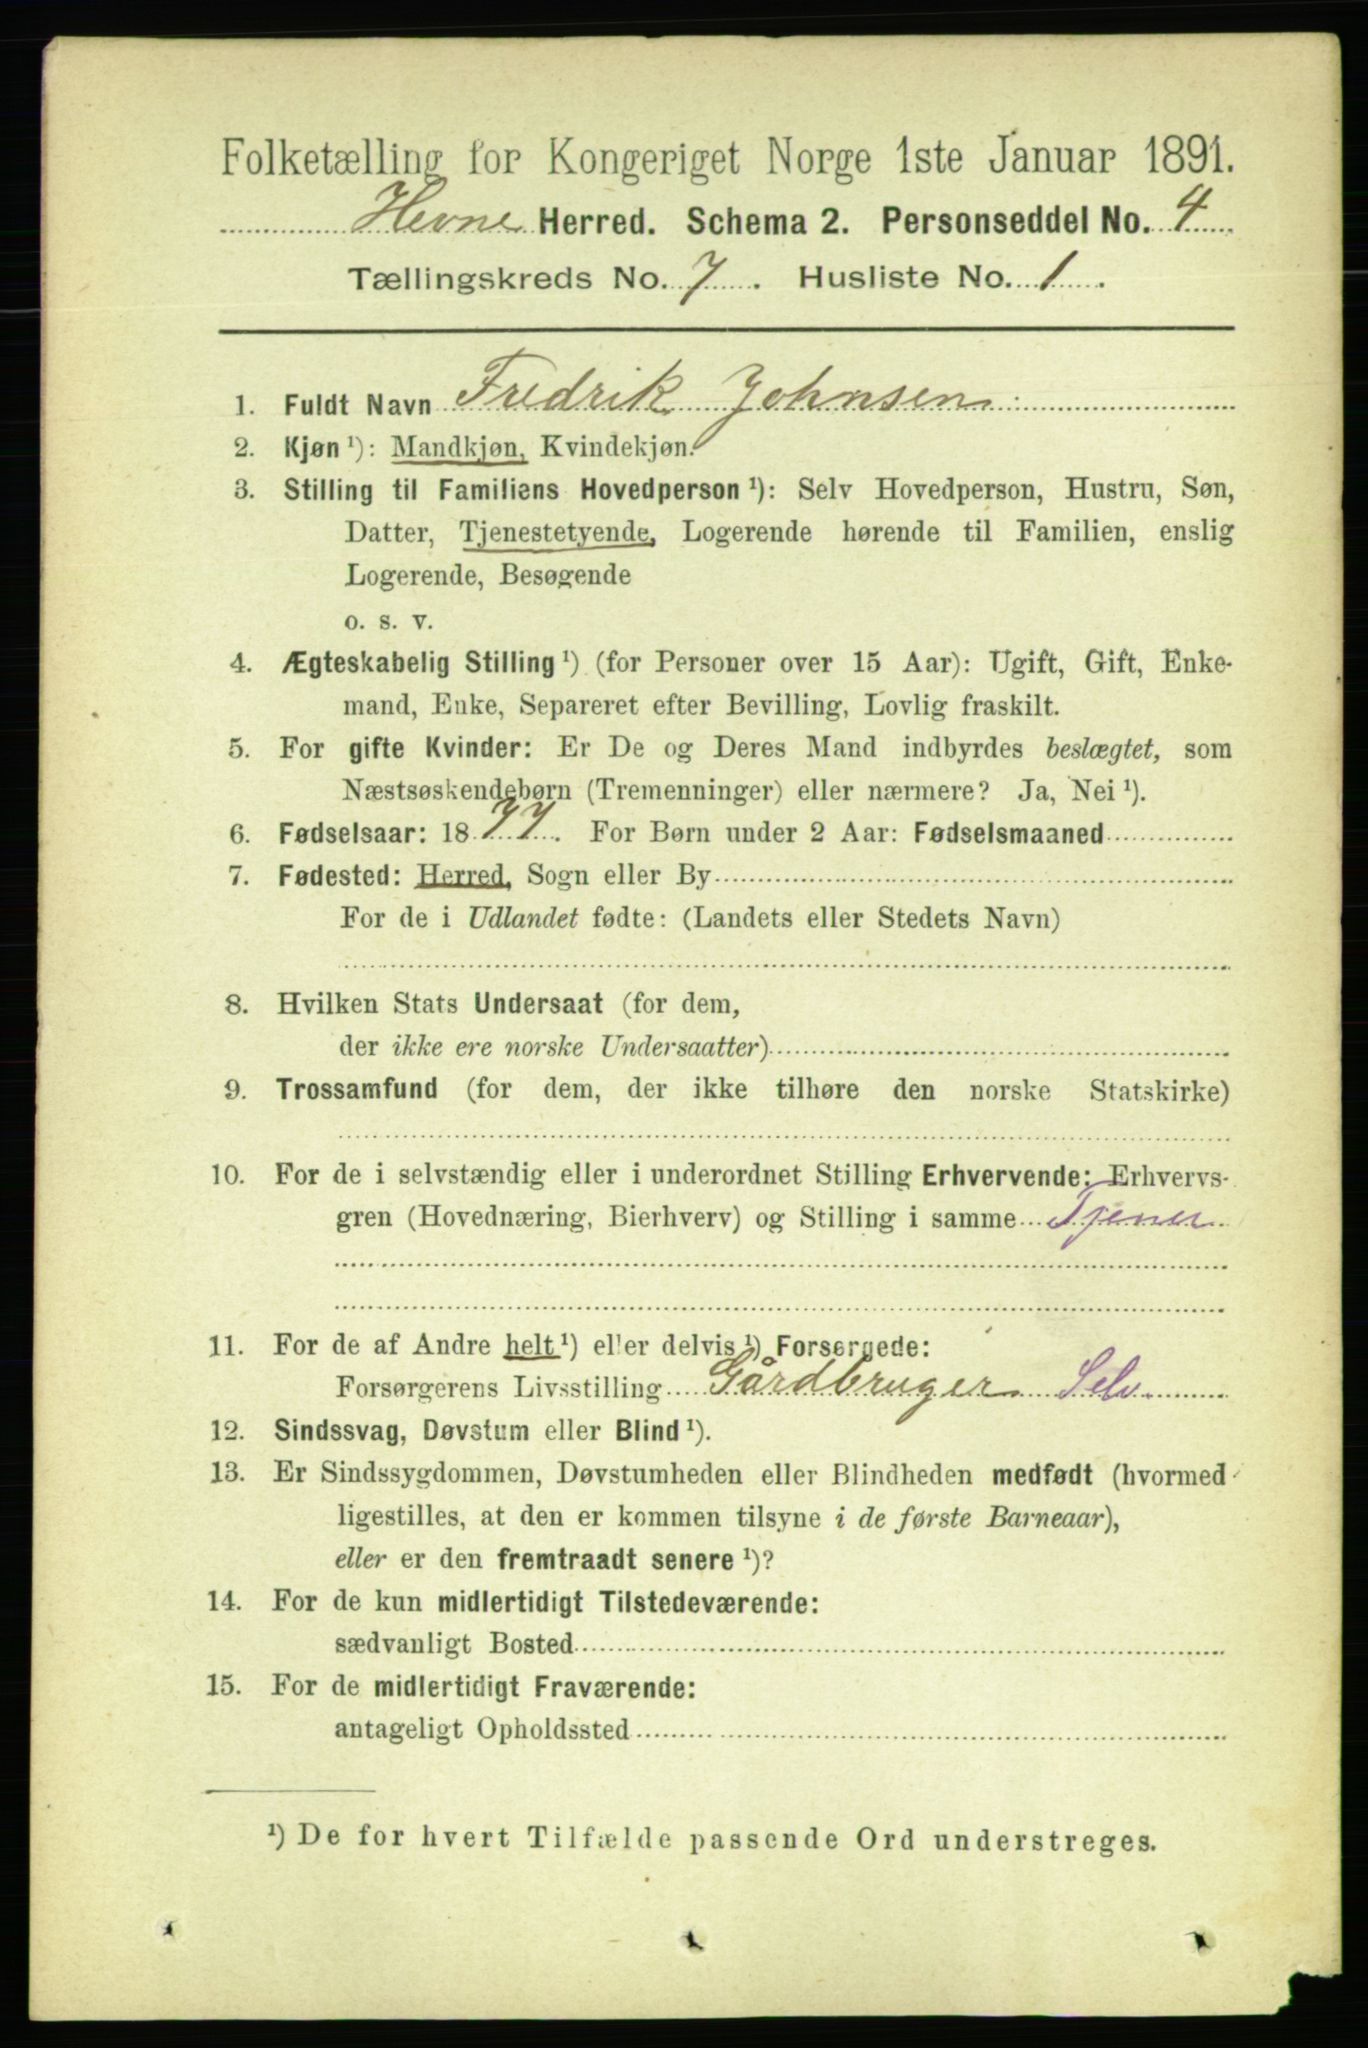 Folketælling for Kongeriget Norge 1ste Januar 1891.
Hevne Herred. Schema 2. Personseddel No. 4
Tællingskreds No. 7. Husliste No. 1.
1. Fuldt Navn Fredrik Johnsen
2. Kjøn ¹): Mandkjøn, Kvindekjøn.
3. Stilling til Familiens Hovedperson ¹): Selv Hovedperson, Hustru, Søn,
Datter, Tjenestetyende, Logerende hørende til Familien, enslig
Logerende, Besøgende
o. s. v.
4. Ægteskabelig Stilling ¹) (for Personer over 15 Aar): Ugift, Gift, Enke-
mand, Enke, Separeret efter Bevilling, Lovlig fraskilt.
5. For gifte Kvinder: Er De og Deres Mand indbyrdes beslægtet, som
Næstsøskendebørn (Tremenninger) eller nærmere? Ja, Nei ¹).
6. Fødselsaar: 1877. For Børn under 2 Aar: Fødselsmaaned
7. Fødested: Herred, Sogn eller By
For de i Udlandet fødte: (Landets eller Stedets Navn)
8. Hvilken Stats Undersaat (for dem,
der ikke ere norske Undersaatter)
9. Trossamfund (for dem, der ikke tilhøre den norske Statskirke)
10. For de i selvstændig eller i underordnet Stilling Erhvervende: Erhvervs-
gren (Hovednæring, Bierhverv) og Stilling i samme Tjener
11. For de af Andre helt ¹) eller delvis ¹) Forsørgede:
Forsørgerens Livsstilling Gårdbruger Selv
12. Sindssvag, Døvstum eller Blind ¹).
13. Er Sindssygdommen, Døvstumheden eller Blindheden medfødt (hvormed
ligestilles, at den er kommen tilsyne i de første Barneaar),
eller er den fremtraadt senere ¹)?
14. For de kun midlertidigt Tilstedeværende:
sædvanligt Bosted
15. For de midlertidigt Fraværende:
antageligt Opholdssted
¹) De for hvert Tilfælde passende Ord understreges.